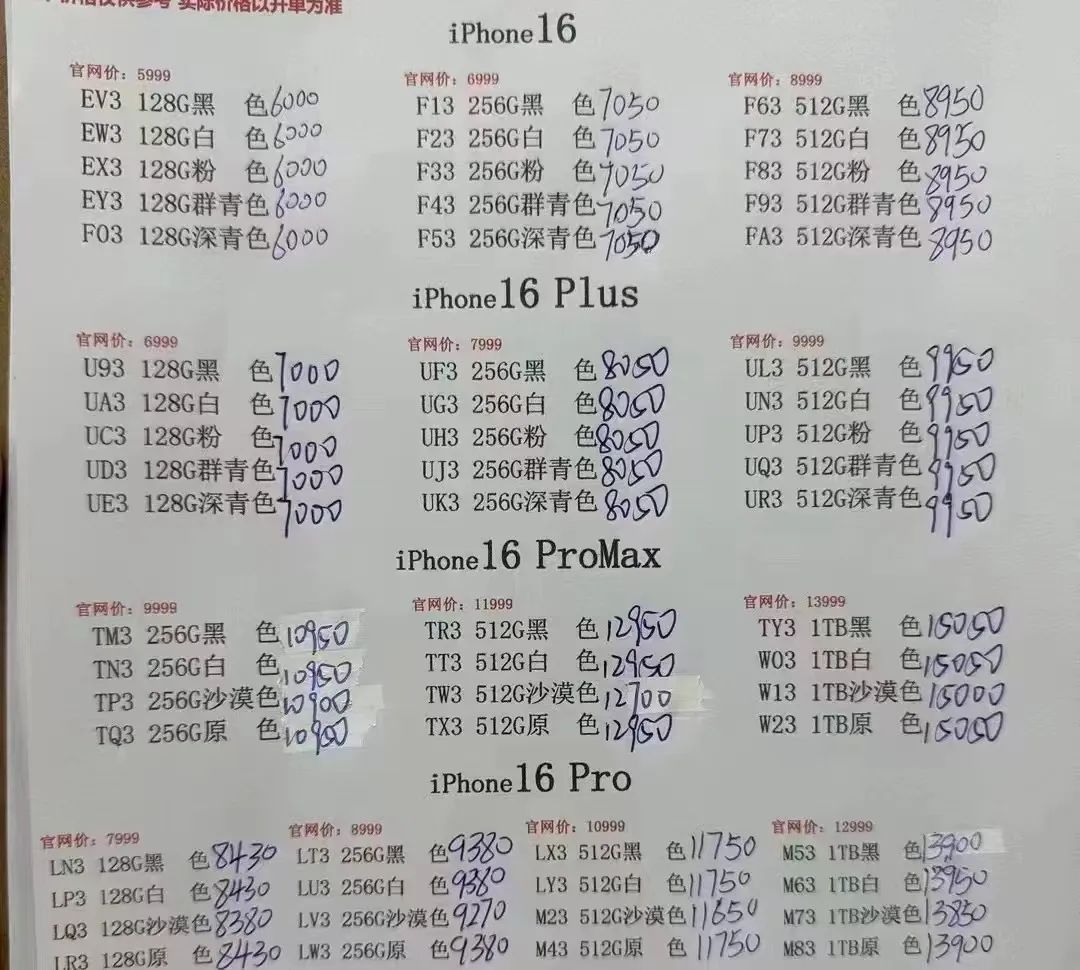 价格仅供参考 实际价格以开单为准
iPhone16
官网价: 5999 官网价: 6999 官网价: 8999
EV3 128G黑 色6000 F13 256G黑 色7050 F63 512G黑 色8950
EW3 128G白 色6000 F23 256G白 色7050 F73 512G白 色8950
EX3 128G粉 色6000 F33 256G粉 色7050 F83 512G粉 色8950
EY3 128G群青色6000 F43 256G群青色7050 F93 512G群青色8950
F03 128G深青色6000 F53 256G深青色7050 FA3 512G深青色8950
iPhone16 Plus
官网价: 6999 官网价: 7999 官网价: 9999
U93 128G黑 色7000 UF3 256G黑 色8050 UL3 512G黑 色9950
UA3 128G白 色7000 UG3 256G白 色8050 UN3 512G白 色9950
UC3 128G粉 色7000 UH3 256G粉 色8050 UP3 512G粉 色9950
UD3 128G群青色7000 UJ3 256G群青色8050 UQ3 512G群青色9950
UE3 128G深青色7000 UK3 256G深青色8050 UR3 512G深青色9950
iPhone16 ProMax
官网价: 9999 官网价: 11999 官网价: 13999
TM3 256G黑 色10950 TR3 512G黑 色12950 TY3 1TB黑 色15050
TN3 256G白 色10950 TT3 512G白 色12950 W03 1TB白 色15050
TP3 256G沙漠色10900 TW3 512G沙漠色12700 W13 1TB沙漠色15000
TQ3 256G原 色10950 TX3 512G原 色12950 W23 1TB原 色15050
iPhone16 Pro
官网价: 7999 官网价: 8999 官网价: 10999 官网价: 12999
LN3 128G黑 色8430 LT3 256G黑 色9380 LX3 512G黑 色11750 M53 1TB黑 色13900
LP3 128G白 色8430 LU3 256G白 色9380 LY3 512G白 色11750 M63 1TB白 色13950
LQ3 128G沙漠色8380 LV3 256G沙漠色9270 M23 512G沙漠色11650 M73 1TB沙漠色13850
LR3 128G原 色8430 LW3 256G原 色9380 M43 512G原 色11750 M83 1TB原 色13900